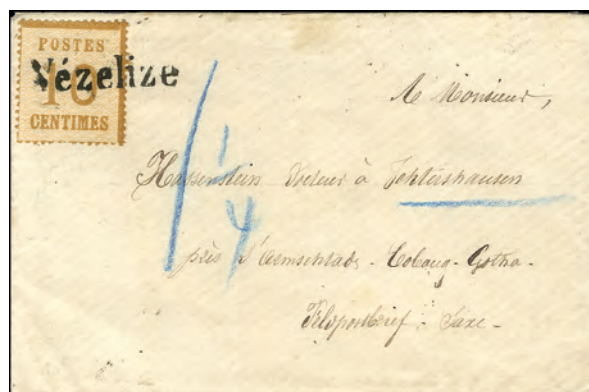 POSTES
10
CENTIMES
Vézelize
A Monsieur,
Hassenstein Docteur à
près d'Arnschtadt - Cobourg-Gotha -
Feldpostbrief - Saxe -
1
4